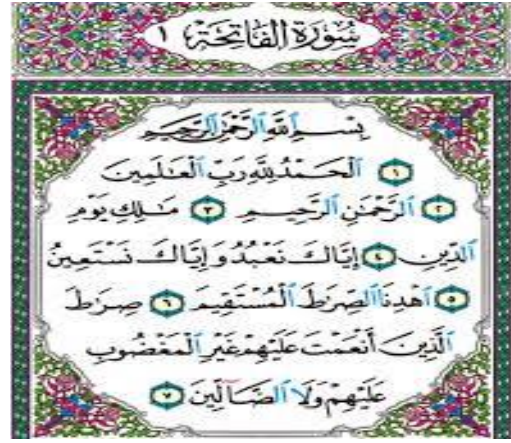 سُورَةُ الْفَاتِحَةِ ١
بِسْمِ ٱللَّهِ ٱلرَّحْمَٰنِ ٱلرَّحِيمِ
١ ٱلْحَمْدُ لِلَّهِ رَبِّ ٱلْعَٰلَمِينَ
٢ ٱلرَّحْمَٰنِ ٱلرَّحِيمِ ٣ مَٰلِكِ يَوْمِ
ٱلدِّينِ ٤ إِيَّاكَ نَعْبُدُ وَإِيَّاكَ نَسْتَعِينُ
٥ ٱهْدِنَا ٱلصِّرَٰطَ ٱلْمُسْتَقِيمَ ٦ صِرَٰطَ
ٱلَّذِينَ أَنْعَمْتَ عَلَيْهِمْ غَيْرِ ٱلْمَغْضُوبِ
عَلَيْهِمْ وَلَا ٱلضَّآلِّينَ ٧